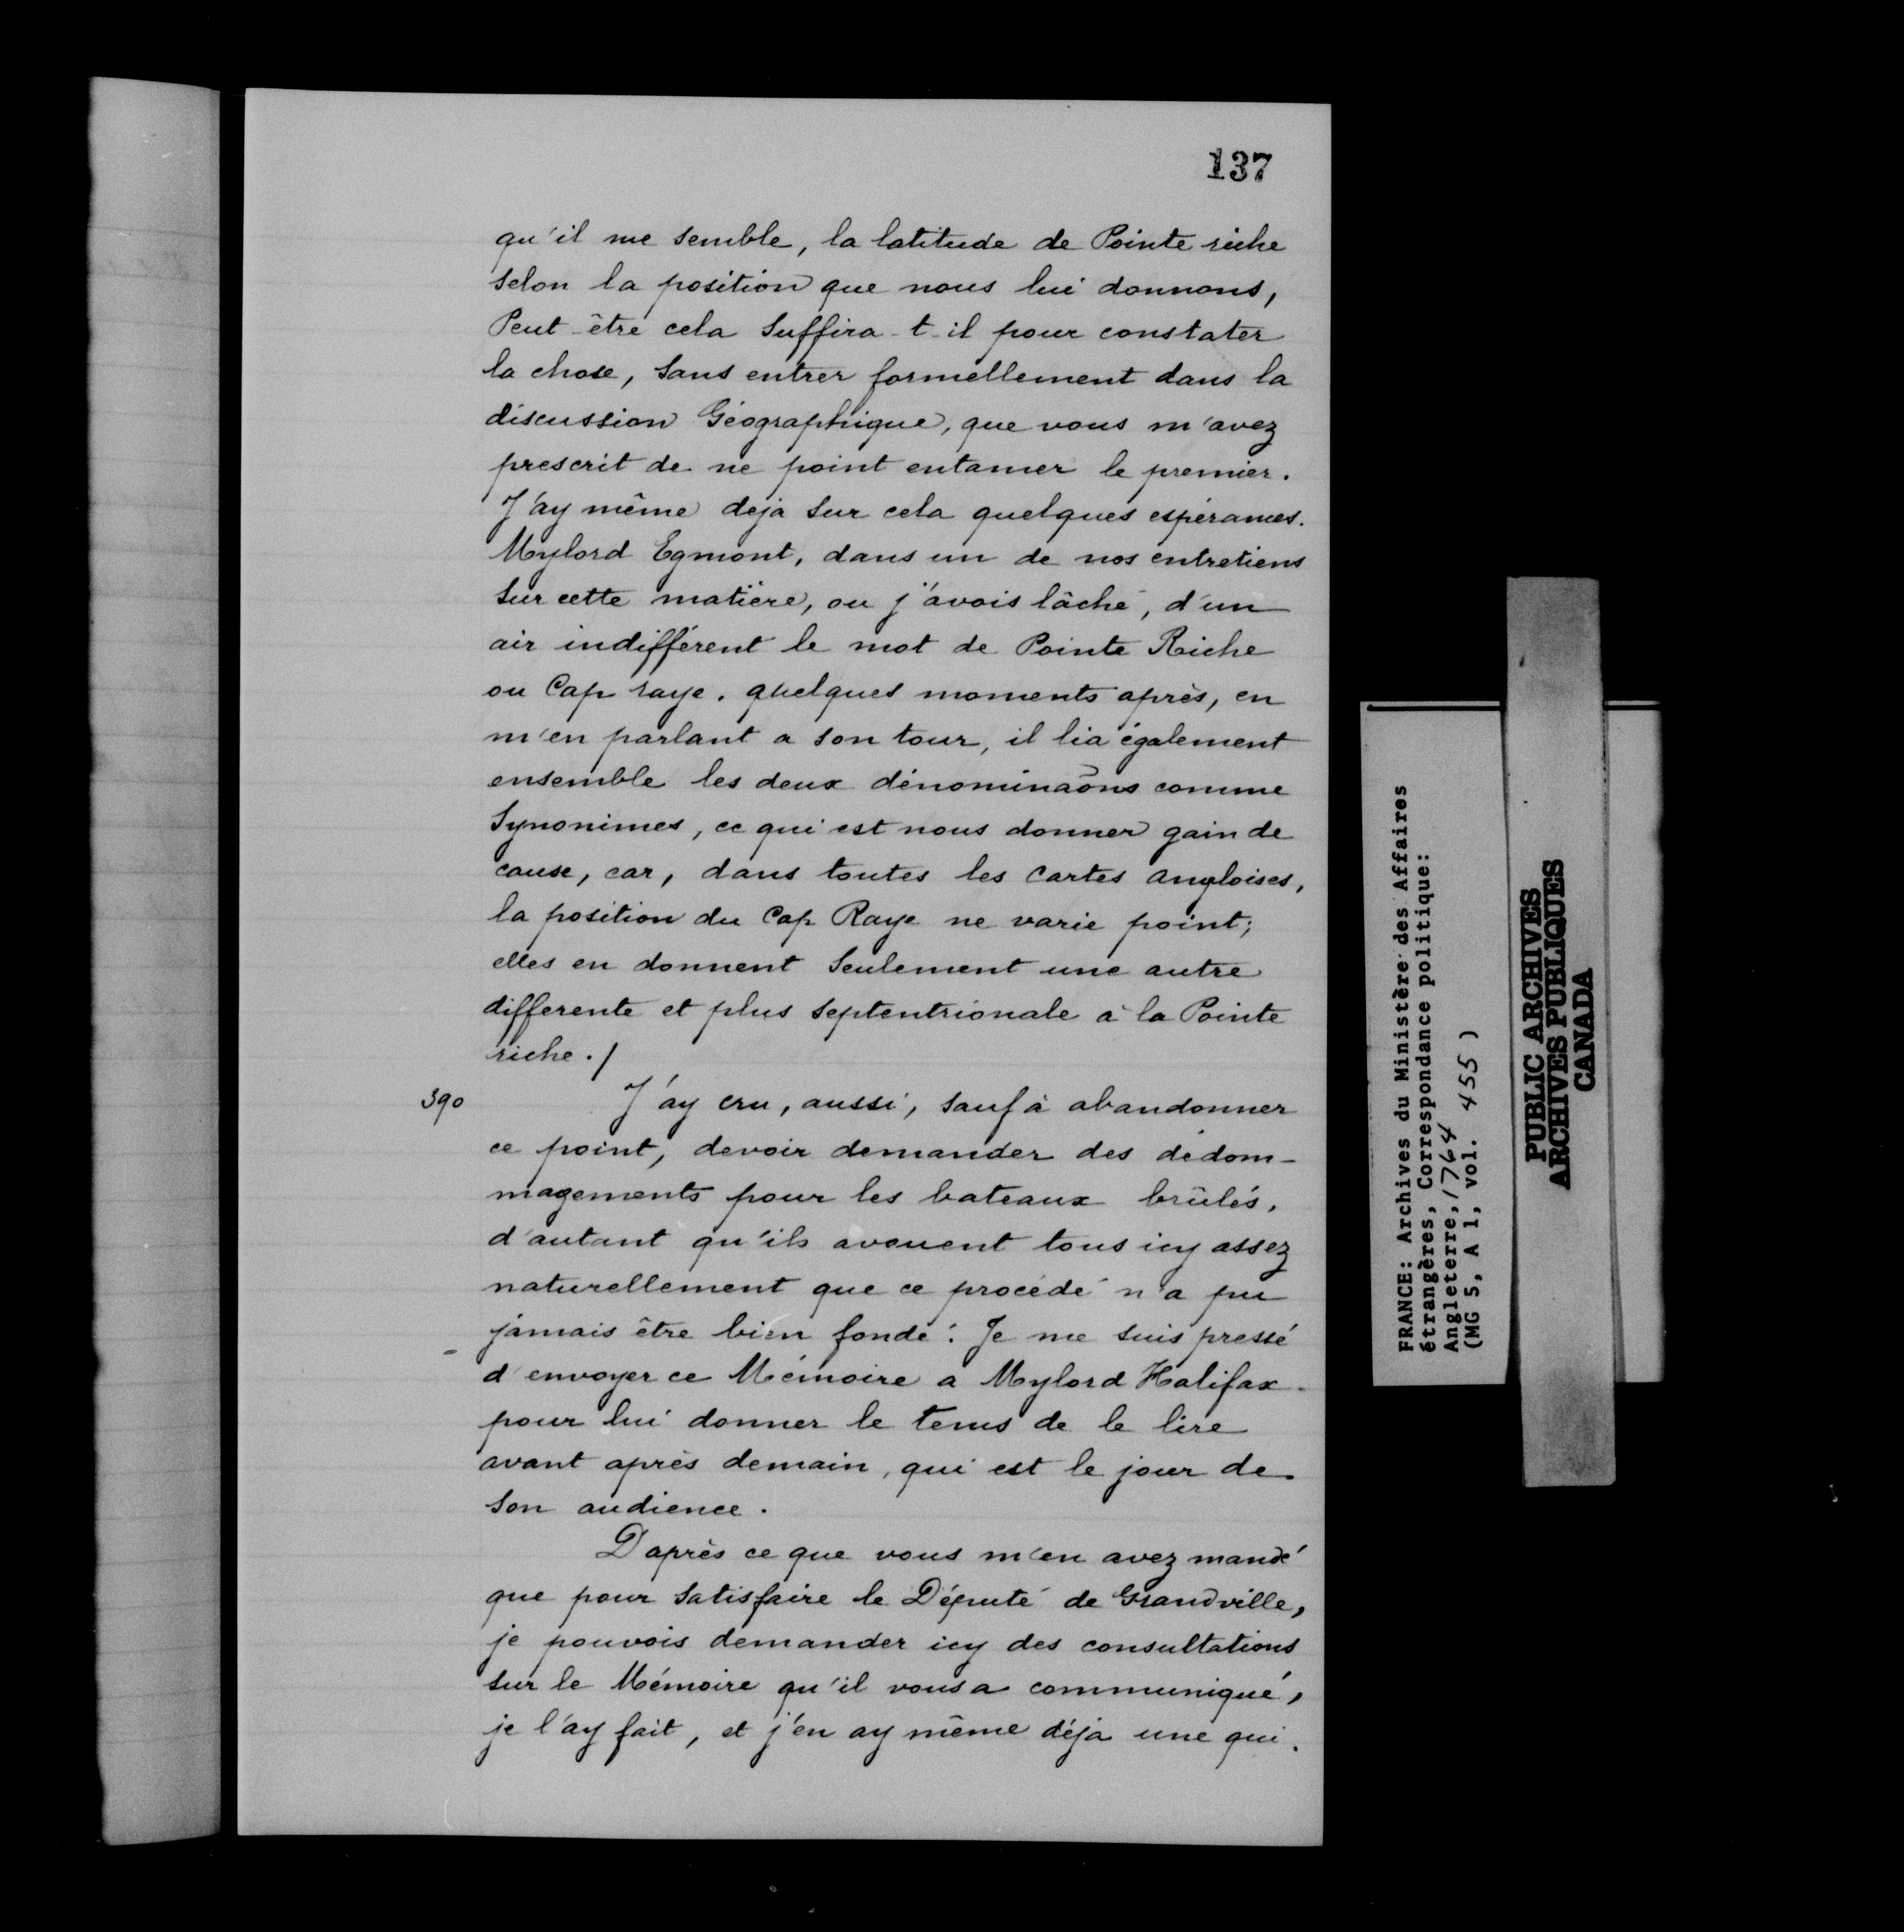 137
qu'il me semble, la latitude de Pointe riche
selon la position que nous lui donnons,
Peut-être cela suffira-t-il pour constater
la chose, sans entrer formellement dans la
discussion Géographique, que vous m'avez
prescrit de ne point entamer le premier.
J'ay même deja sur cela quelques espérances.
Mylord Egmont, dans un de nos entretiens
sur cette matière, ou j'avois lâché, d'un
air indifférent le mot de Pointe Riche
ou Cap raye. quelques moments après, en
m'en parlant a son tour, il lia également
ensemble les deux dénominaõns comme
Synonimes, ce qui est nous donner gain de
cause, car, dans toutes les cartes angloises,
la position du Cap Raye ne varie point;
elles en donnent seulement une autre
differente et plus septentrionale à la Pointe
riche./
390
J'ay cru, aussi, sauf à abandonner
ce point, devoir demander des dédom-
magements pour les bateaux brûlés,
d'autant qu'ils avouent tous icy assez
naturellement que ce procédé n'a pu
jamais être bien fondé. Je me suis pressé
d'envoyer ce Mémoire a Mylord Halifax
pour lui donner le tems de le lire
avant après demain, qui est le jour de
son audience.
D'après ce que vous m'en avez mandé
que pour satisfaire le Député de Grandville,
je pouvois demander icy des consultations
sur le Mémoire qu'il vous a communiqué,
je l'ay fait, et j'en ay même déja une qui.
FRANCE: Archives du Ministère des Affaires
étrangères, Correspondance politique:
Angleterre, 1764
(MG 5, A 1, vol. 455)
PUBLIC ARCHIVES
ARCHIVES PUBLIQUES
CANADA